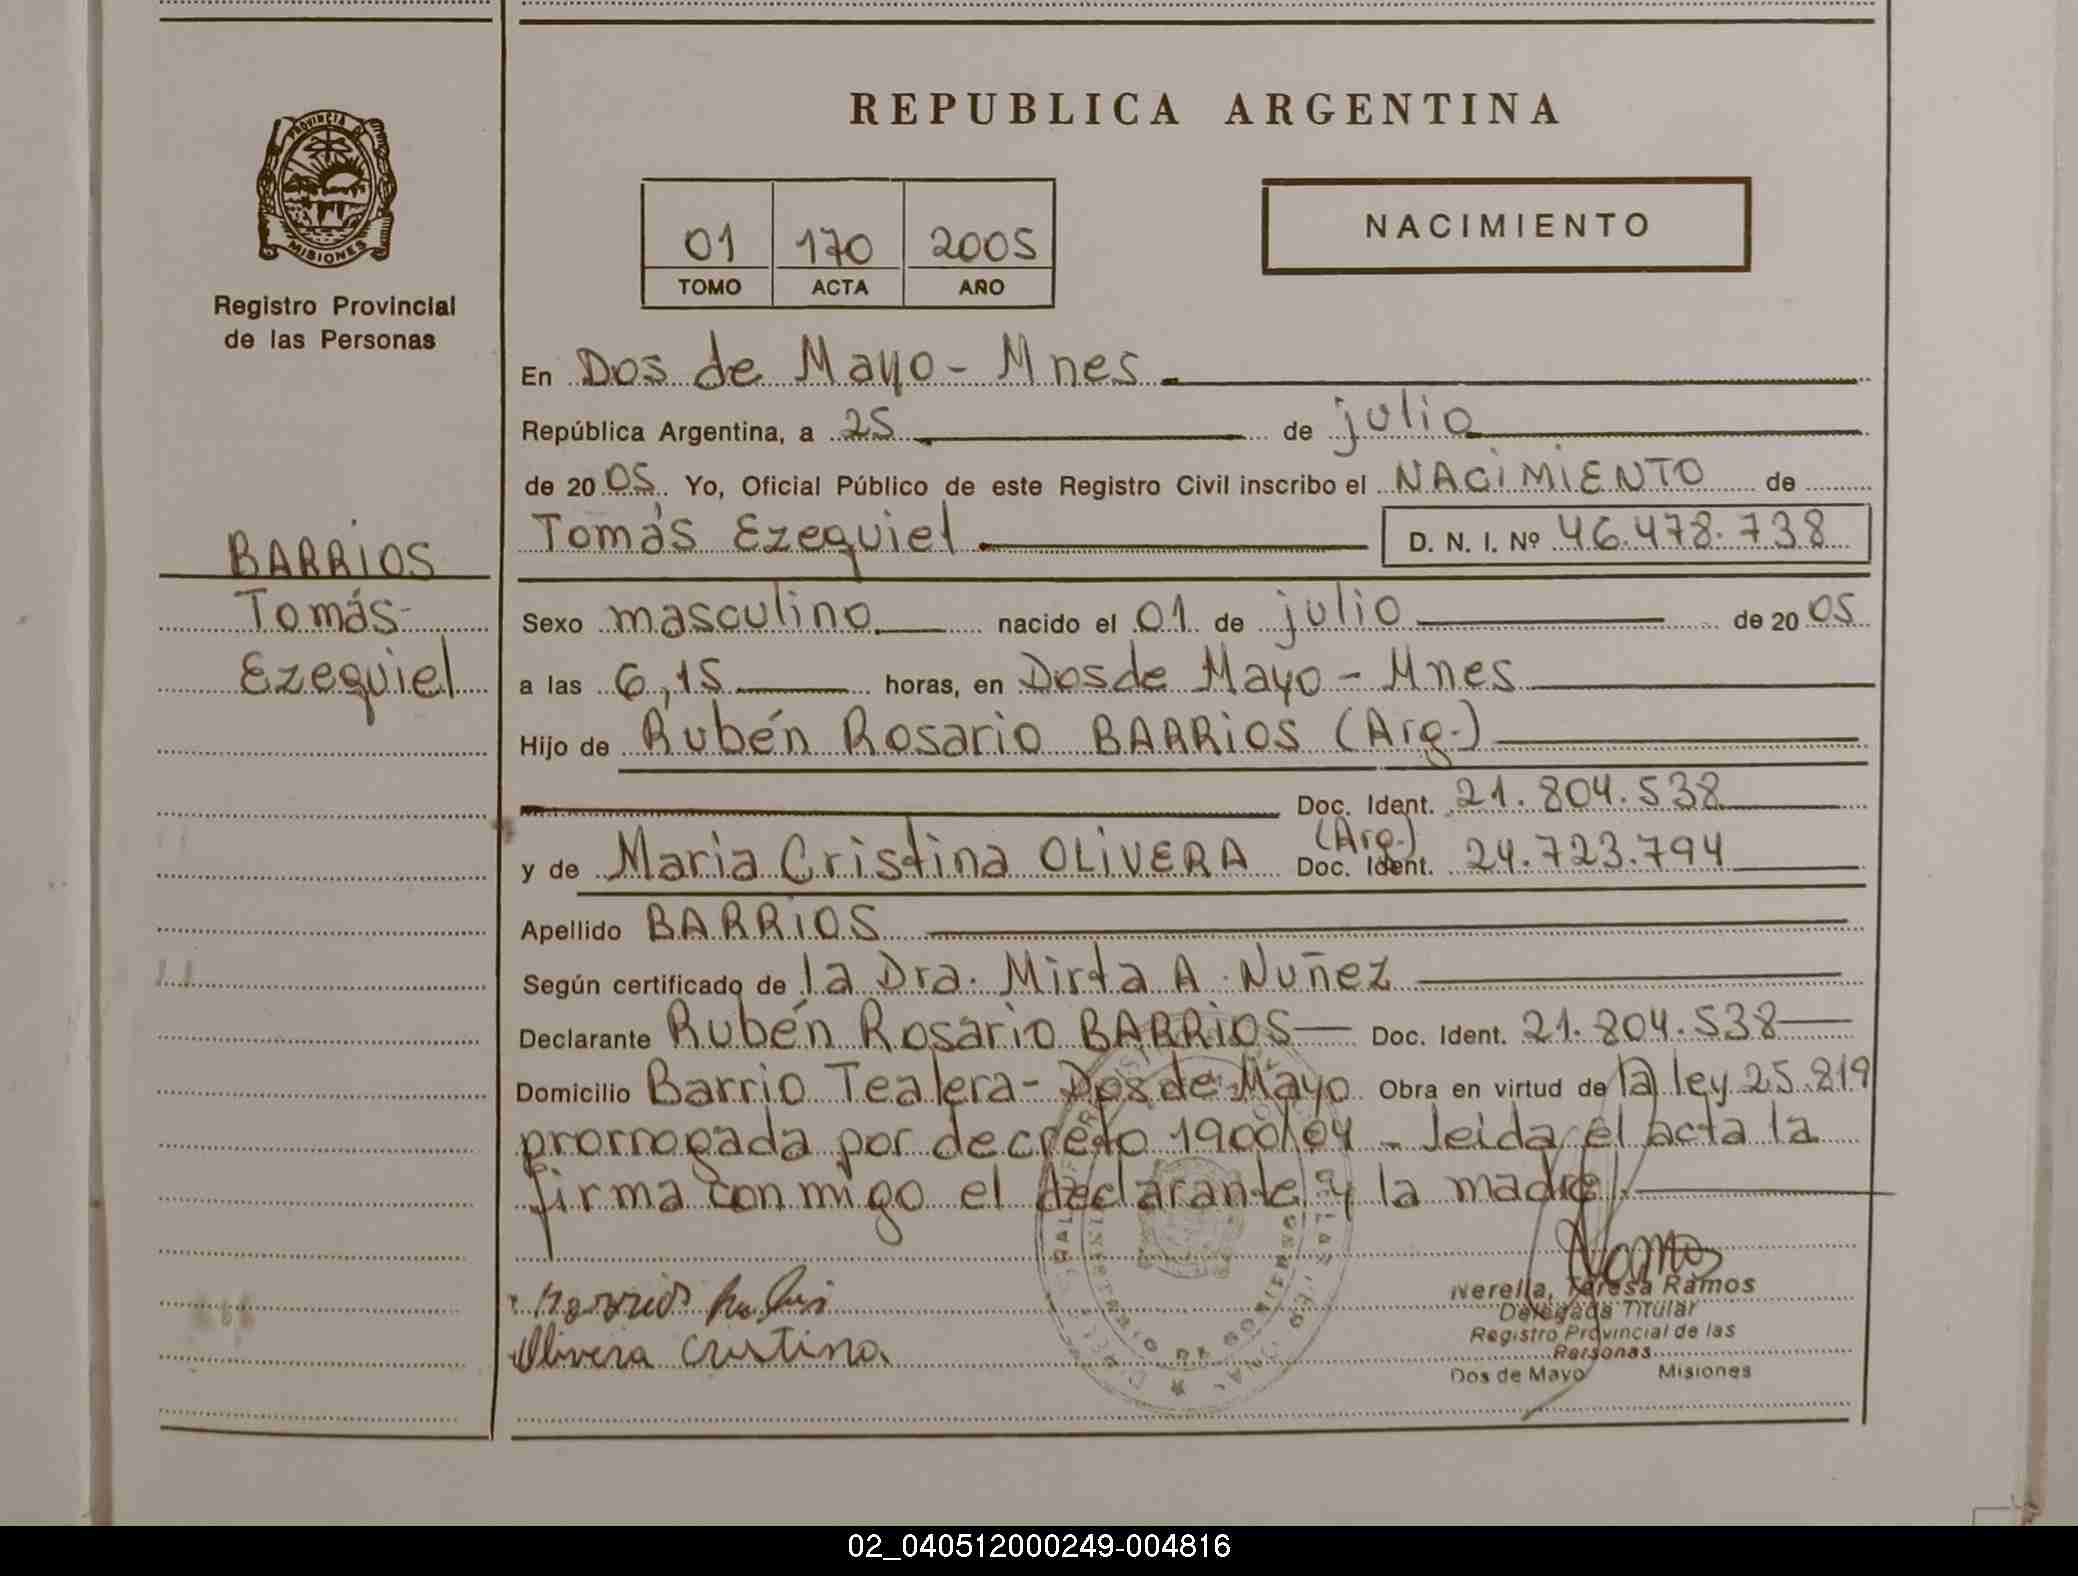 REPUBLICA ARGENTINA
PROVINCIA DE
MISIONES
Registro Provincial
de las Personas
01 170 2005
TOMO ACTA AÑO
NACIMIENTO
En Dos de Mayo - Mnes
República Argentina, a 25 de julio
de 2005 Yo, Oficial Público de este Registro Civil inscribo el NACIMIENTO de
Tomás Ezequiel D. N. I. Nº 46.478.738
BARRIOS
Tomás
Ezequiel
Sexo masculino nacido el 01 de julio de 2005
a las 6,15 horas, en Dos de Mayo - Mnes
Hijo de Rubén Rosario BARRIOS (Arg.)
Doc. Ident. 21.804.538
y de Maria Cristina OLIVERA (Arg.) Doc. Ident. 24.723.794
Apellido BARRIOS
Según certificado de la Dra. Mirta A. Nuñez
Declarante Rubén Rosario BARRIOS Doc. Ident. 21.804.538
Domicilio Barrio Tealera - Dos de Mayo Obra en virtud de la ley 25.819
prorrogada por decreto 1900/04 - leida el acta la
firma conmigo el declarante y la madre.
Olivera Cristina
Nerella, Teresa Ramos
Delegada Titular
Registro Provincial de las
Personas
Dos de Mayo Misiones
02_040512000249-004816